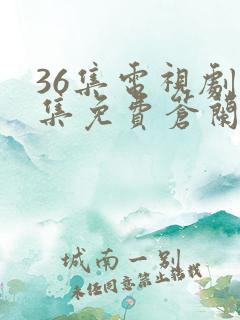 36集電視劇
集免費蒼蘭
城南一别
未经同意禁止搭载